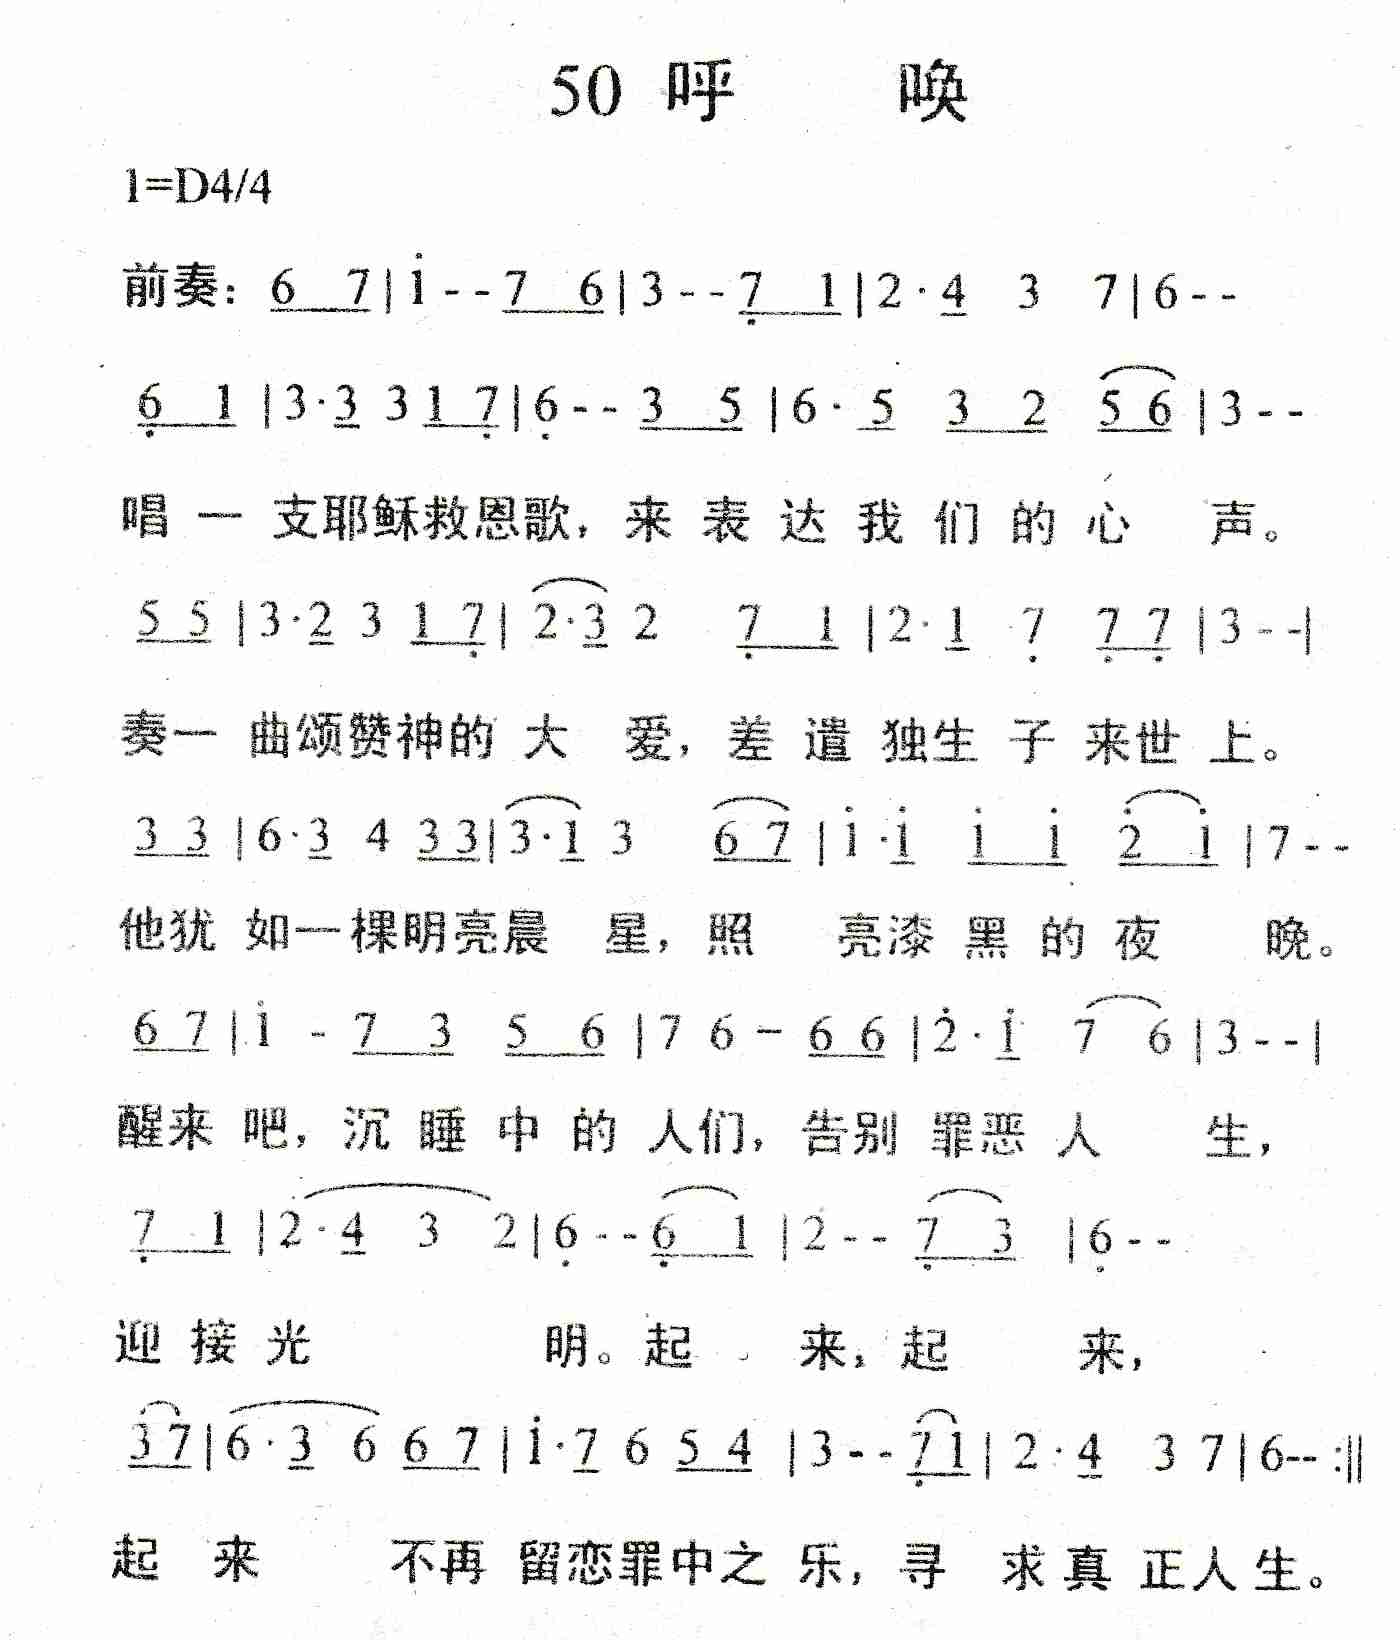 50 呼 唤
1=D4/4
前奏: 6 7 | i - - 7 6 | 3 - - 7 1 | 2 · 4 3 7 | 6 - -
6 1 | 3 · 3 3 1 7 | 6 - - 3 5 | 6 · 5 3 2 5 6 | 3 - -
唱 一 支耶稣救恩歌, 来 表 达 我 们 的 心 声。
5 5 | 3 · 2 3 1 7 | 2 · 3 2 7 1 | 2 · 1 7 7 7 | 3 - - |
奏一 曲颂赞神的 大 爱, 差 遣 独生 子 来世 上。
3 3 | 6 · 3 4 3 3 | 3 · 1 3 6 7 | i · i i i 2 i | 7 - -
他犹 如一棵明亮晨 星, 照 亮漆 黑 的 夜 晚。
6 7 | i - 7 3 5 6 | 7 6 - 6 6 | 2 · i 7 6 | 3 - - |
醒来 吧, 沉 睡 中 的 人们, 告别 罪恶 人 生,
7 1 | 2 · 4 3 2 | 6 - - 6 1 | 2 - - 7 3 | 6 - -
迎 接 光 明。起 来, 起 来,
3 7 | 6 · 3 6 6 7 | i · 7 6 5 4 | 3 - - 7 1 | 2 · 4 3 7 | 6 - - :||
起 来 不再 留恋罪中之 乐, 寻 求真 正人生。